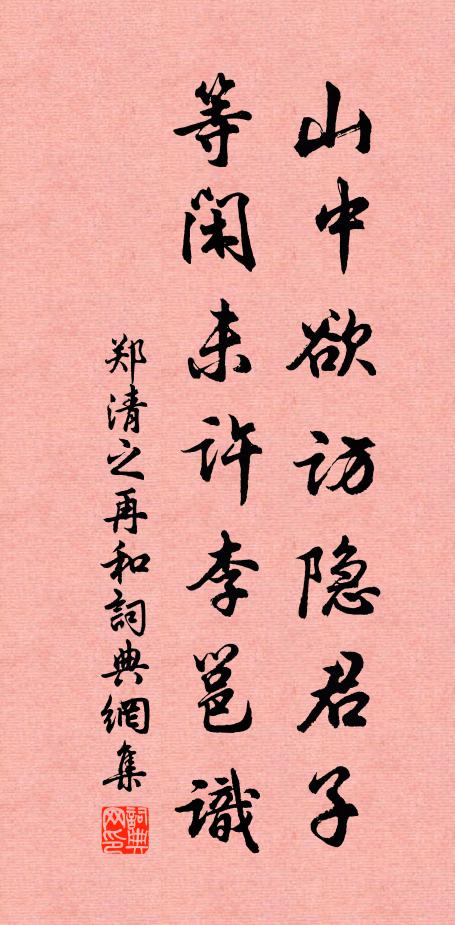 山中欲访隐君子
等闲未许李邕識
郑清之再和詞典網集
詞典网印